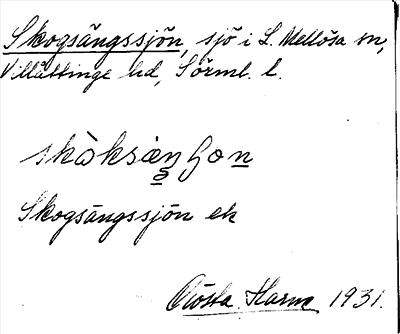 Skogsängssjön, sjö i L. Mellösa sn,
Villåttinge hd, Sörml. l.
Skogsängssjön ek
Gösta 1931.